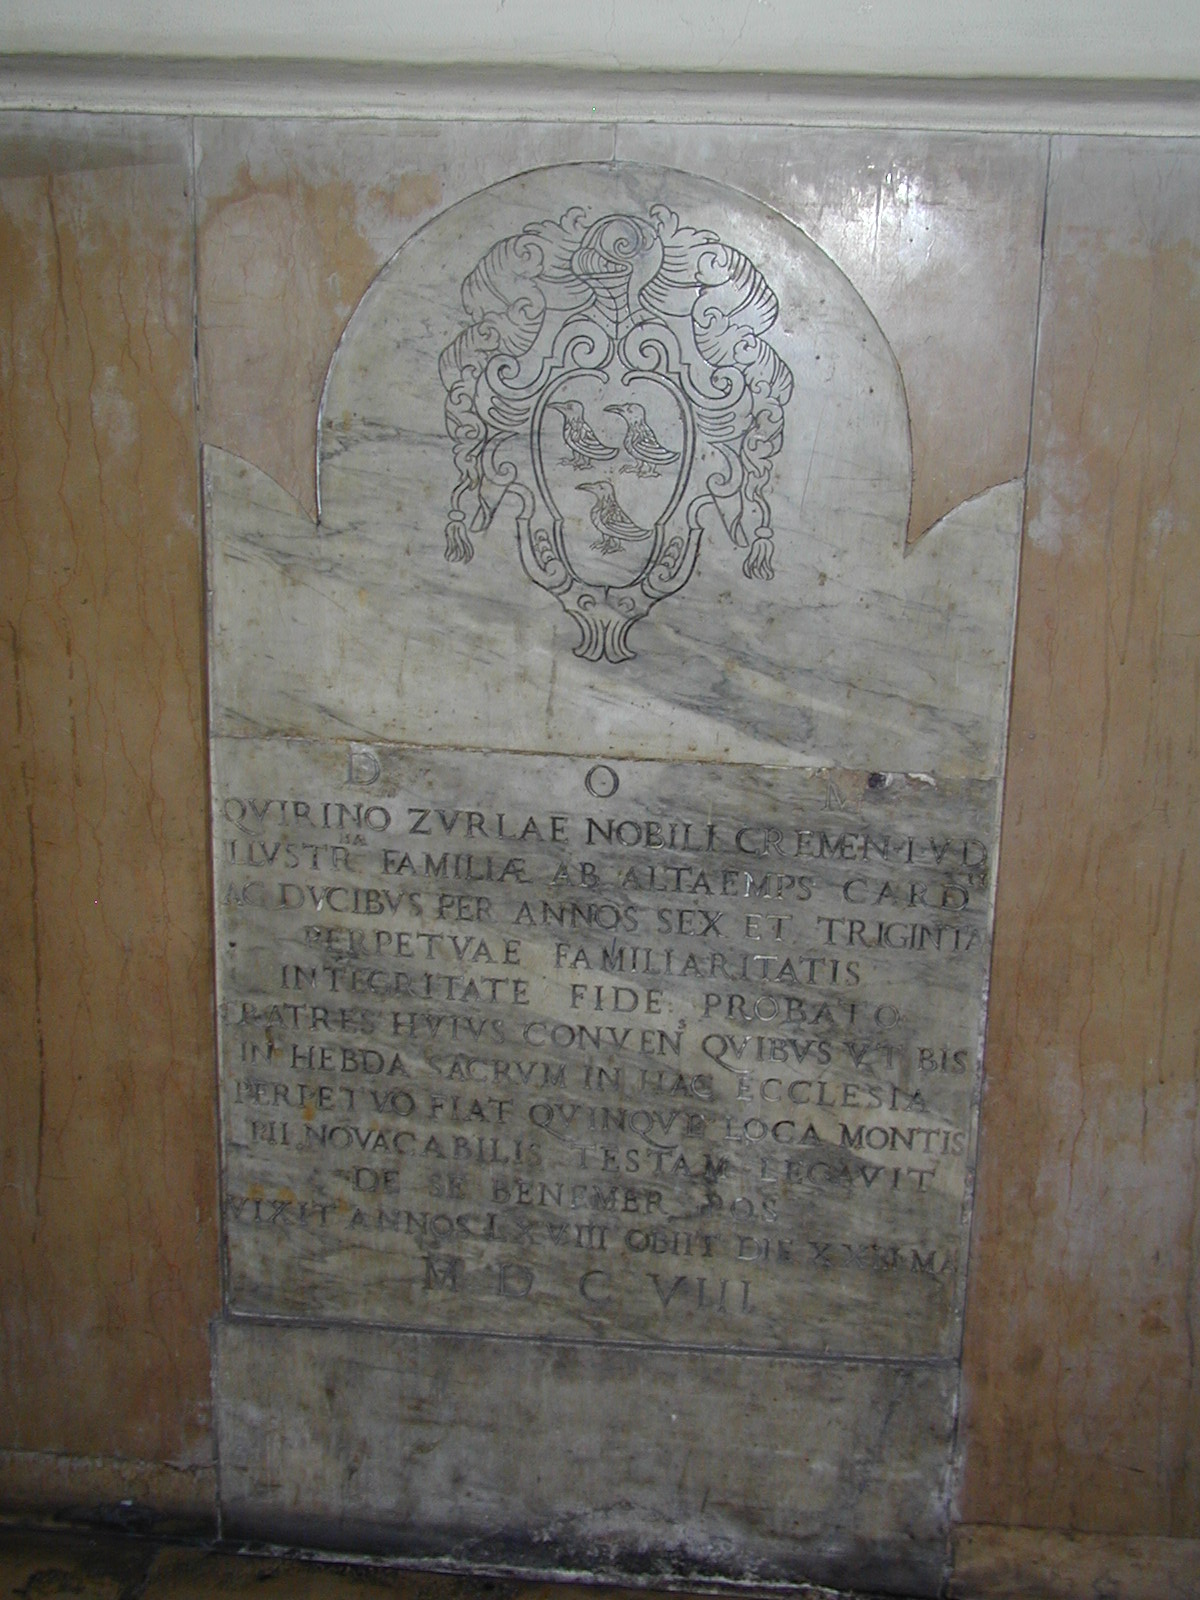 D O M
QVIRINO ZVRLAE NOBILI CREMEN·I·V·D
ILLVSTR.MA FAMILIÆ AB ALTAEMPS CARD
AC DVCIBVS PER ANNOS SEX ET TRIGINTA
PERPETVAE FAMILIARITATIS
INTEGRITATE FIDE PROBATO
FRATRES HVIVS CONVEN.S QVIBVS VT BIS
IN HEBDA SACRVM IN HAC ECCLESIA
PERPETVO FIAT QVINQVE LOCA MONTIS
PII NOVACABILIS TESTAM LEGAVIT
DE SE BENEMER POS
VIXIT ANNOS LXVIII OBIIT DIE
M D C VIII